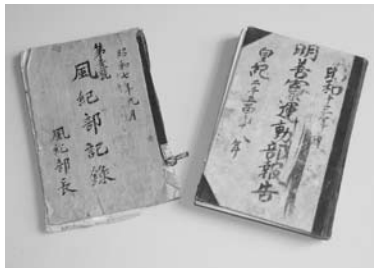 昭和七年九月
第壹號
風紀部記錄
風紀部長
昭和十三年度
明善寮運動部報告
皇紀二千五百九十八年